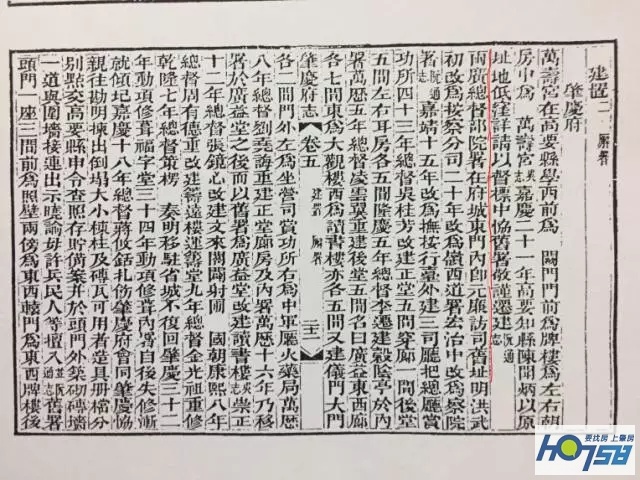 建置二 廨署
肇慶府
萬壽宮在高要縣學西前爲 闕門門前爲牌樓爲左右朝
房中爲 萬壽宮吳志嘉慶二十一年高要知縣陳聞炳以原
址地低窪詳請以督標中協舊署敬謹遷建阮通志
兩廣總督部院署在府城東門內即元廉訪司舊址明洪武
初改爲按察分司二十年改爲嶺西道署宏治中改爲察院
署阮通志嘉靖十五年改爲撫按行臺外建三司廳把總廳賞
功所四十三年總督吳桂芳改建正堂五間穿廊一間後堂
五間左右耳房各五間隆慶五年總督李遷建穀陰亭於內
署萬歷五年總督凌雲翼重建正堂後五間名曰廣益東西廊
各七間東爲大觀樓西爲讀書樓亦各五間又建儀門大門
肇慶府志 卷五 建置 廨署 二十二
各二間門外左爲坐營司賞功所右爲中軍廳火藥局萬歷
八年總督劉堯誨重建正堂廊房及內署萬歷十六年乃移
署於廣益堂之後而以舊署爲廣益堂改建讀書樓吳志崇正
十二年總督張鏡心改建文來閣闢射圃 國朝康熙八年
總督周有德重改建籌遠樓運籌堂九年總督金光祖重修
乾隆七年總督策楞 奏明移駐省城不復回肇慶三十二
年動項修葺福字堂三十四年動項修葺內署自後失修漸
就傾圯嘉慶十八年總督蔣攸銛札飭肇慶府會同肇慶協
親往勘明揀出倒塌大小桷柱及磚瓦可用者造具册檔分
別點交高要縣申令查照存貯備案并於頭門外築砌磚墻
一道與圍墻接連出示曉諭毋許兵民人等擅入並阮通志舊署
頭門一座三間前爲照壁兩傍爲東西轅門爲東西牌樓後
要找房 上肇房
HO758